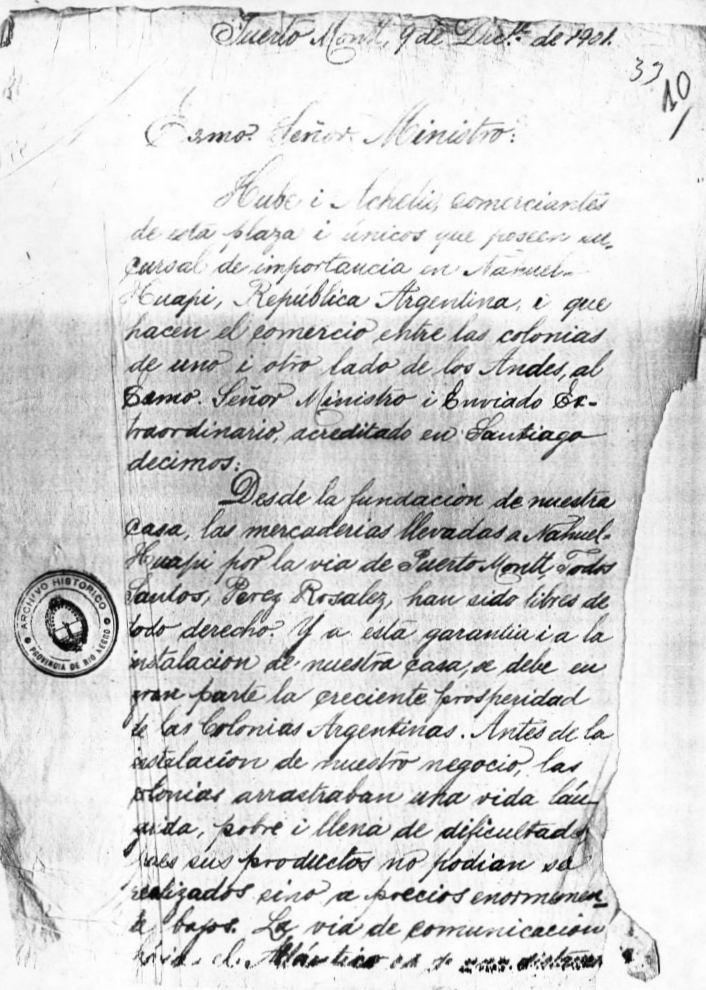 Puerto Montt, 9 de Dic.bre de 1901.
33
10
Exmo. Señor Ministro:
Hube i Achelis, comerciantes
de esta plaza i únicos que poseen su-
cursal de importancia en Nahuel-
Huapi, República Argentina, i que
hacen el comercio entre las colonias
de uno i otro lado de los Andes, al
Exmo. Señor Ministro i Enviado Ex-
traordinario, acreditado en Santiago
decimos:
Desde la fundacion de nuestra
casa, las mercaderias llevadas a Nahuel-
Huapi por la via de Puerto Montt, Todos
Santos, Perez Rosalez, han sido libres de
todo derecho. Y a esta garantia i a la
instalacion de nuestra casa, se debe en
gran parte la creciente prosperidad
de las Colonias Argentinas. Antes de la
instalacion de nuestro negocio, las
colonias arrastraban una vida lán-
guida, pobre i llena de dificultades
pues sus productos no podian se
realizados sino a precios enormemen-
te bajos. La via de comunicacion
hácia el Atlántico es de una distan
ARCHIVO HISTORICO
PROVINCIA DE RIO NEGRO